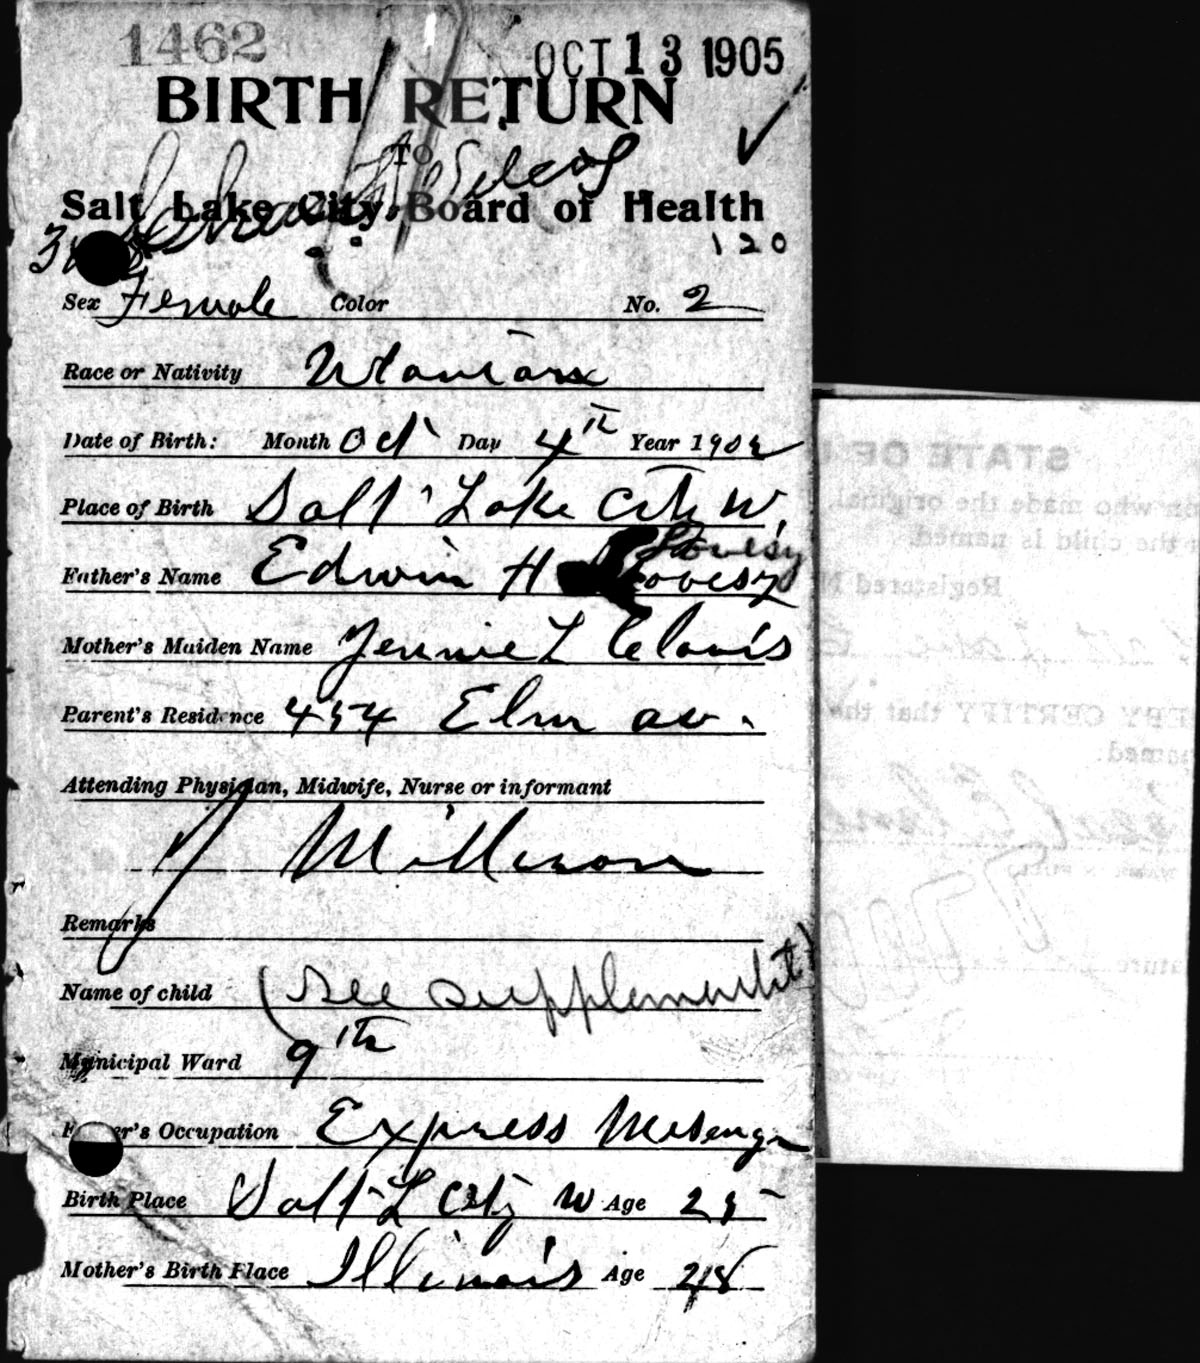 1462
OCT 13 1905
BIRTH RETURN
TO
Salt Lake City Board of Health
120
Sex Female Color No. 2
Race or Nativity
Date of Birth: Month Oct Day 4th Year 190
Place of Birth Salt Lake City U,
Lovesy
Father's Name Edwin H Lovesy
Mother's Maiden Name Jennie L
Parent's Residence 454 Elm av.
Attending Physician, Midwife, Nurse or informant
Remarks
Name of child (see supplement)
Municipal Ward 9th
Father's Occupation Express Mesenger
Birth Place Salt L City U Age
Mother's Birth Place Illinois Age 28
STATE OF
on who made the original.
the child is named.
Registered
CERTIFY that the
named.